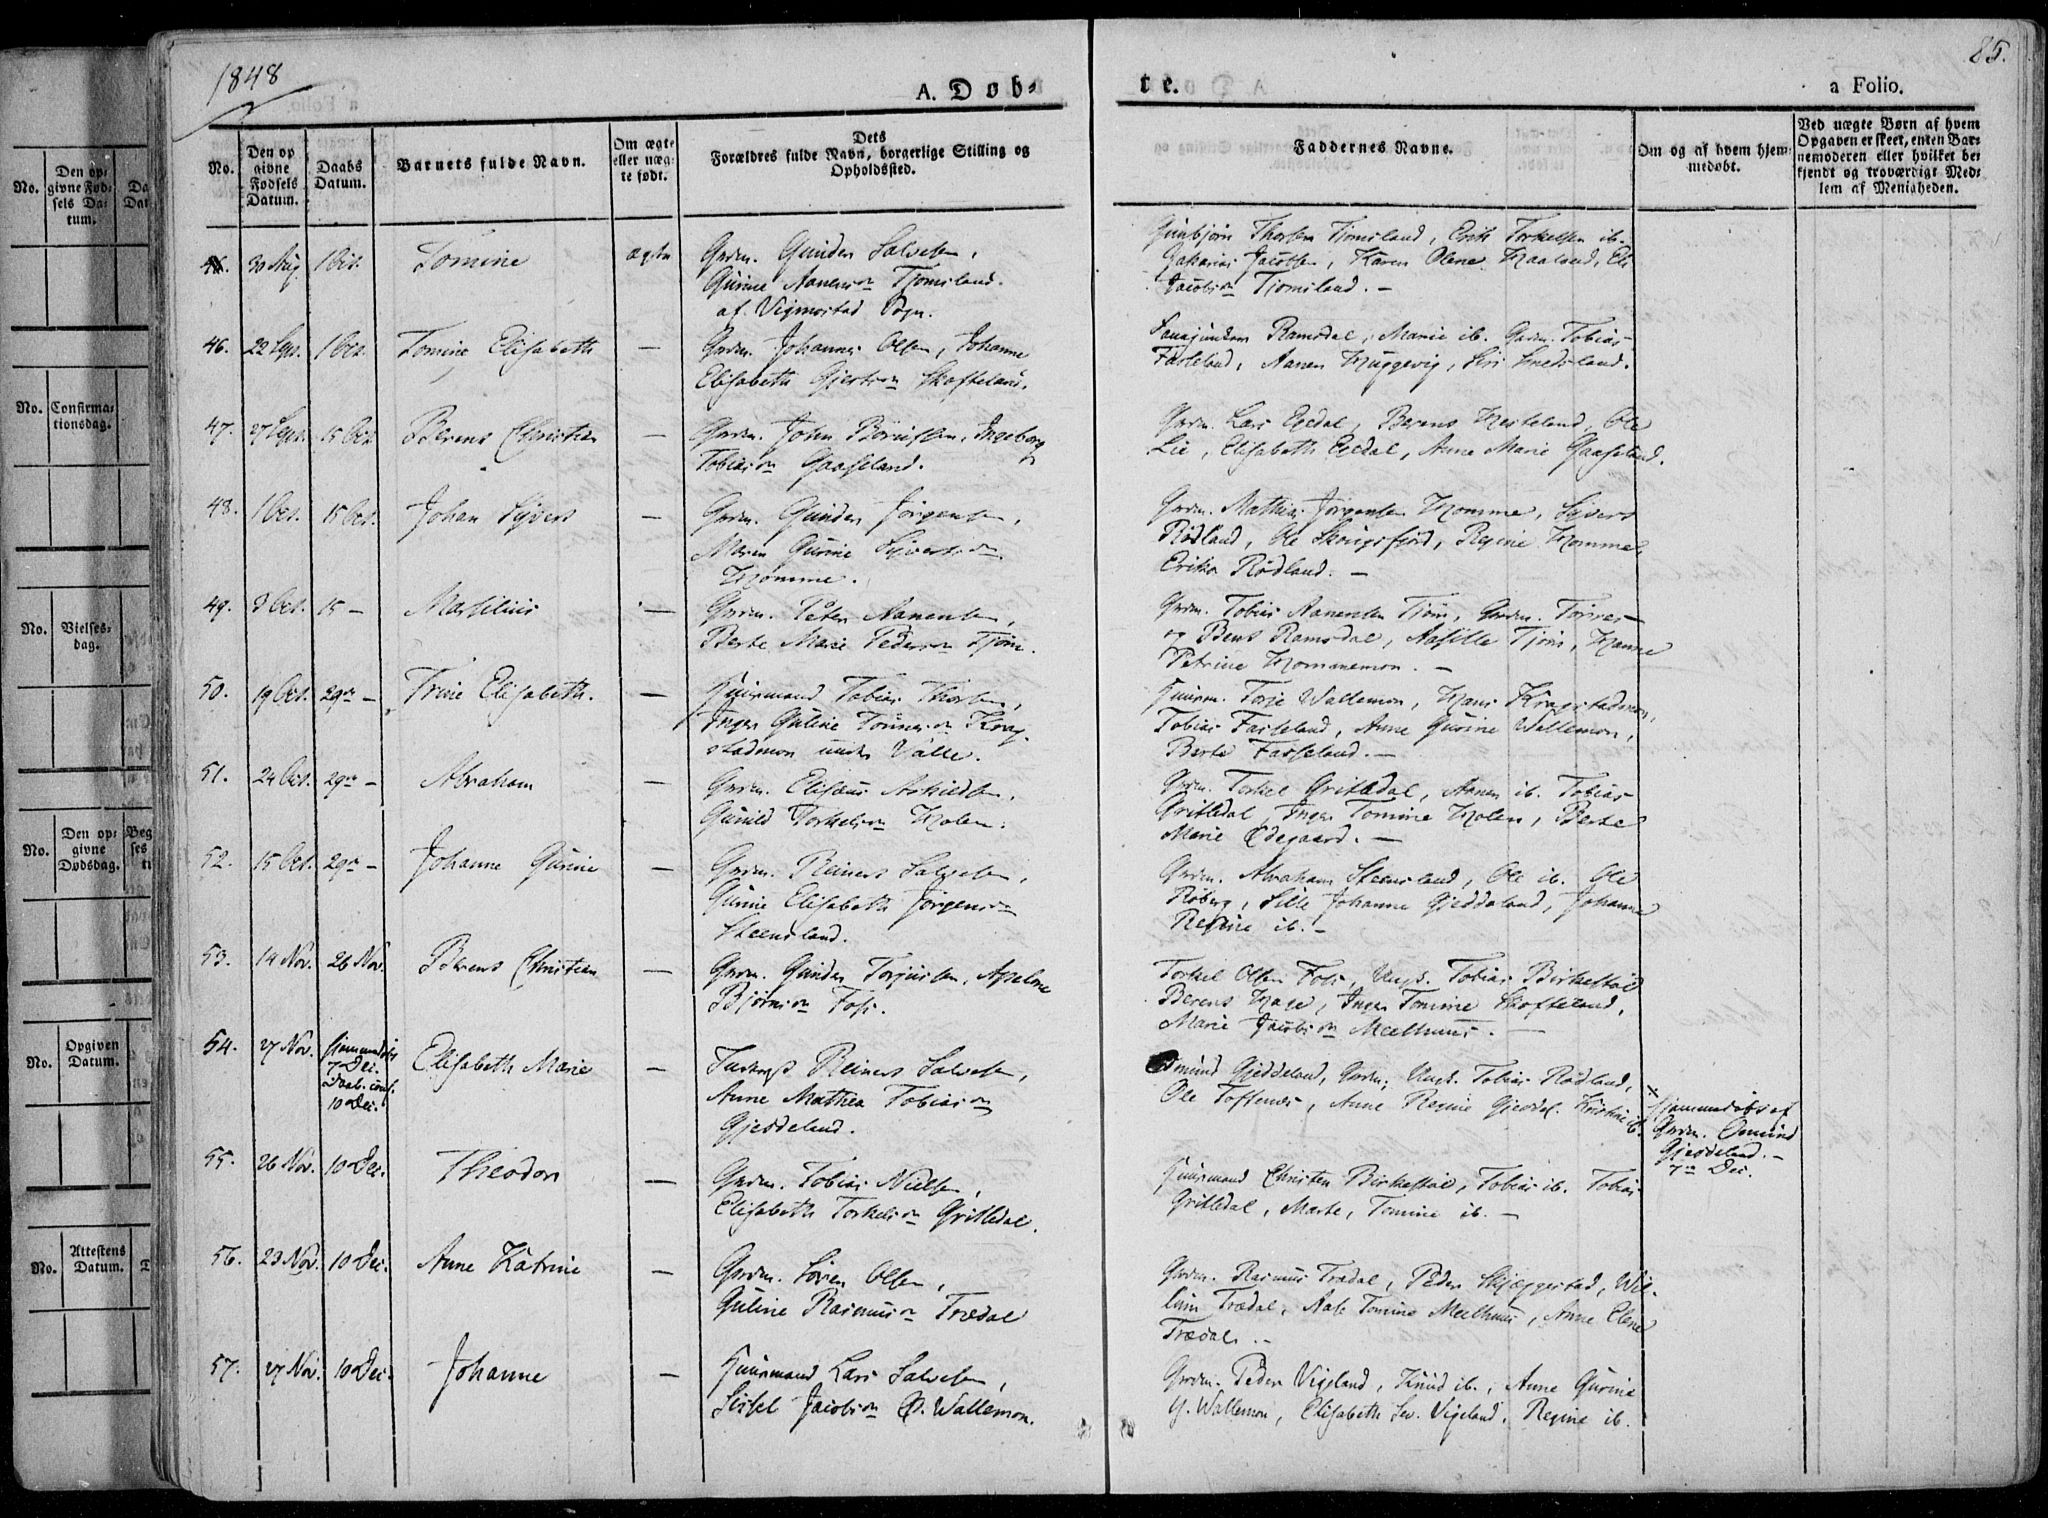 1848
A. Døb-
te.
a Folio.
85.
No.
Den op
givne
Fødsels
Datum.
Daabs
Datum.
Barnets fulde Navn.
Om ægte
eller uæg-
te født.
Dets
Forældres fulde Navn, borgerlige Stilling og
Opholdssted.
Faddernes Navne.
Om og af hvem hjem-
medøbt.
Ved uægte Børn af hvem
Opgaven er skeet, enten Bar-
nemoderen eller hvilket be-
kjendt og troværdigt Med-
lem af Menigheden.
No.
Den op-
givne Fød-
sels Da-
tum.
No.
Confirma-
tionsdag.
No.
Vielses-
dag.
No.
Den op-
givne
Dødsdag.
No.
Opgiven
Datum.
No.
Attestens
Datum.
30 Aug 1 Oct. Tomine ægte Grdm. Gunder Salvesen,
Gurine Aanensen Tjomsland.
af Vigmostad Sogn.
Gunbjørn Thorsen Tjomsland, Erik Torkelsen ib.
Zakarias Jacobsen, Karen Olene Haaland, Eli
Jacobsen Tjomsland. -
46. 22 Sept. 1 Oct. Tomine Elisabeth — Grdm. Johannes Olsen, Johanne
Elisabeth Gjertsen Skofteland.
Ramsdal, Marie ib. Grdm. Tobias
Fasseland, Aanen Huggevig, Siri Smedsland.
47. 27 Sept. 15 Oct. Berens Christian — Grdm. John Berentsen, Ingeborg
Tobiasen Gaaseland.
Grdm. Lars Egedal, Berens Hesteland, Ole
Lie, Elisabeth Egedal, Anne Marie Gaaseland.
48. 1 Oct. 15 Oct. Johan Syvert — Grdm. Gunder Jørgensen,
Maren Gurine Syvertsen
Homme.
Grdm. Mathias Jørgensen Homme, Syvert
Rødland, Ole Skougsfjord, Regine Homme,
Erika Rødland. —
49. 3 Oct. 15 — Marselius — Grdm. Peter Aanensen,
Berte Marie Pedersen Tjøm.
Grdm. Tobias Aanensen Tjøm, Grdm. Torres
og Bent Ramsdal, Aasille Tjøm, Hanne
Petrine Hommemon. —
50. 19 Oct. 29de — Trine Elisabeth. — Huusmand Tobias Thorsen,
Inger Guline Tønnesen Krag-
stadmon under Valle.
Huusm. Torje Wallemon, Hans Kragstadmon,
Tobias Fasseland, Anne Gurine Wallemon,
Berte Fasseland. —
51. 24 Oct. 29de — Abraham — Grdm. Elisæus Askildsen,
Gunild Torkelsen Holen.
Grdm. Torkel Gritledal, Aanen ib. Tobias
Gritledal, Inger Tomine Holen, Berte
Marie Ødegaard. —
52. 15 Oct. 29de — Johanne Gurine — Grdm. Reiners Salvesen,
Gurine Elisabeth Jørgensen
Steensland.
Grdm. Abraham Steensland, Ole ib. Ole
Røberg, Sille Johanne Gjeddeland, Johanne
Regine ib. —
53. 14 Nov. 26 Nov. Berens Christian — Grdm. Gunder Torjussen, Apelone
Bjørnsen Foss.
Torkel Olsen Foss, Ungk. Tobias Birkestøl
Berens Hage, Inger Tomine Skofteland,
Marie Jacobsen Meelhuus. —
54. 27 Nov. hjemmedøbt
7 Dec.
Daab. conf.
10 Dec. Elisabeth Marie — Reiners Salvesen,
Anne Mathea Tobiasen
Gjeddeland.
Osmund Gjeddeland, Grdm; Ungk. Tobias Rødland,
Ole Toftenes, Anne Regine Gjeddel. Kirstine ib.
hjemmedøbt af
Grdm. Osmund
Gjeddeland. —
7de Dec.
55. 26 Nov. 10 Dec. Theodor — Grdm. Tobias Nielsen,
Elisabeth Torkelsen Gritledal.
Huusmand Christen Birkestøl, Tobias ib. Tobias
Gritledal, Marte, Tomine ib. —
56. 23 Nov. 10 Dec. Anne Katrine — Grdm. Søren Olsen,
Guline Rasmusen Trædal
Grdm. Rasmus Trædal, Peder Skjæggestad, Wil-
lum Trædal, Aase Tomine Meelhuus, Anne Elene
Trædal. —
57. 27 Nov. 10 Dec. Johanne — Huusmand Lars Salvesen,
Sissel Jacobsen Wallemon.
Grdm. Peder Vigeland, Knud ib., Anne Gurine
Wallemon, Elisabeth Vigeland, Regine ib.